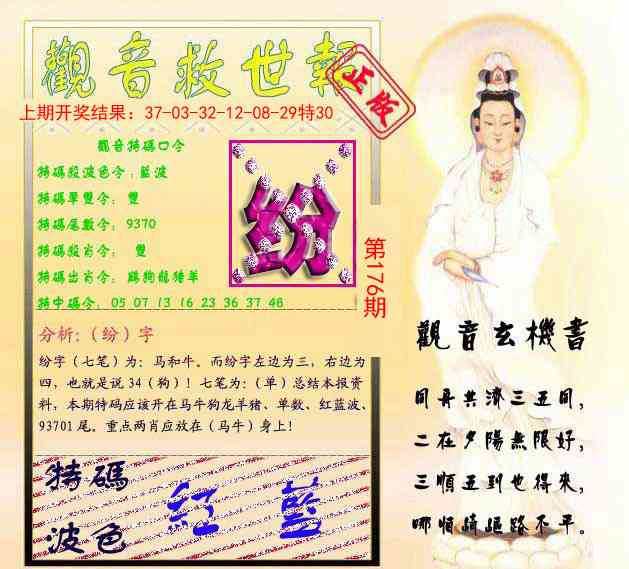 觀音救世報
正版
上期开奖结果：37-03-32-12-08-29特30
觀音特碼口令
特碼殺波色令：藍波
特碼單雙令： 雙
特碼尾數令： 9370
特碼殺肖令： 雙
特碼出肖令： 雞狗龍豬羊
特中碼令： 05 07 13 16 23 36 37 48
纷
第176期
分析:（纷）字
纷字（七笔）为：马和牛。而纷字左边为三，右边为
四，也就是说 34（狗）！七笔为：（单）总结本报资
料，本期特码应该开在马牛狗龙羊猪、单数、红蓝波、
93701 尾。重点两肖应放在（马牛）身上！
特碼
波色
紅 藍
觀音玄機書
同舟共濟三五回，
二在夕陽無限好，
三順五到也得來，
哪惧崎嶇路不平。